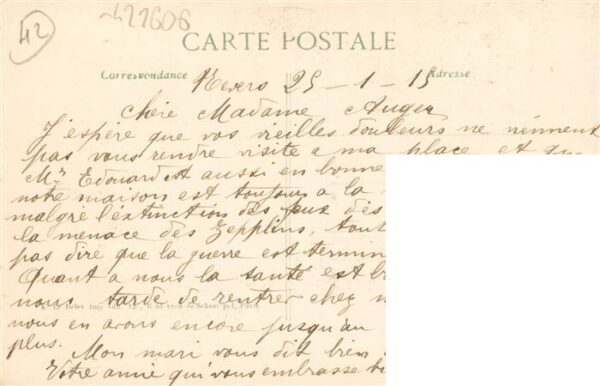 42
421606
CARTE POSTALE
Correspondance
Adresse
Nevers 25 - 1 - 15
Chère Madame Auger
J'espère que vos vieilles douleurs ne viennent
pas vous rendre visite a ma place et que
Mr Edouard est aussi en bonne
notre maison est toujours a la
malgré l'extinction des feux dès
la menace des Zepplins, tout
pas dire que la guerre est termin
Quant a nous la santé est b
nous tarde de rentrer chez n
nous en avons encore jusqu'au
plus.
Mon mari vous dit bien
Votre amie qui vous embrasse bi